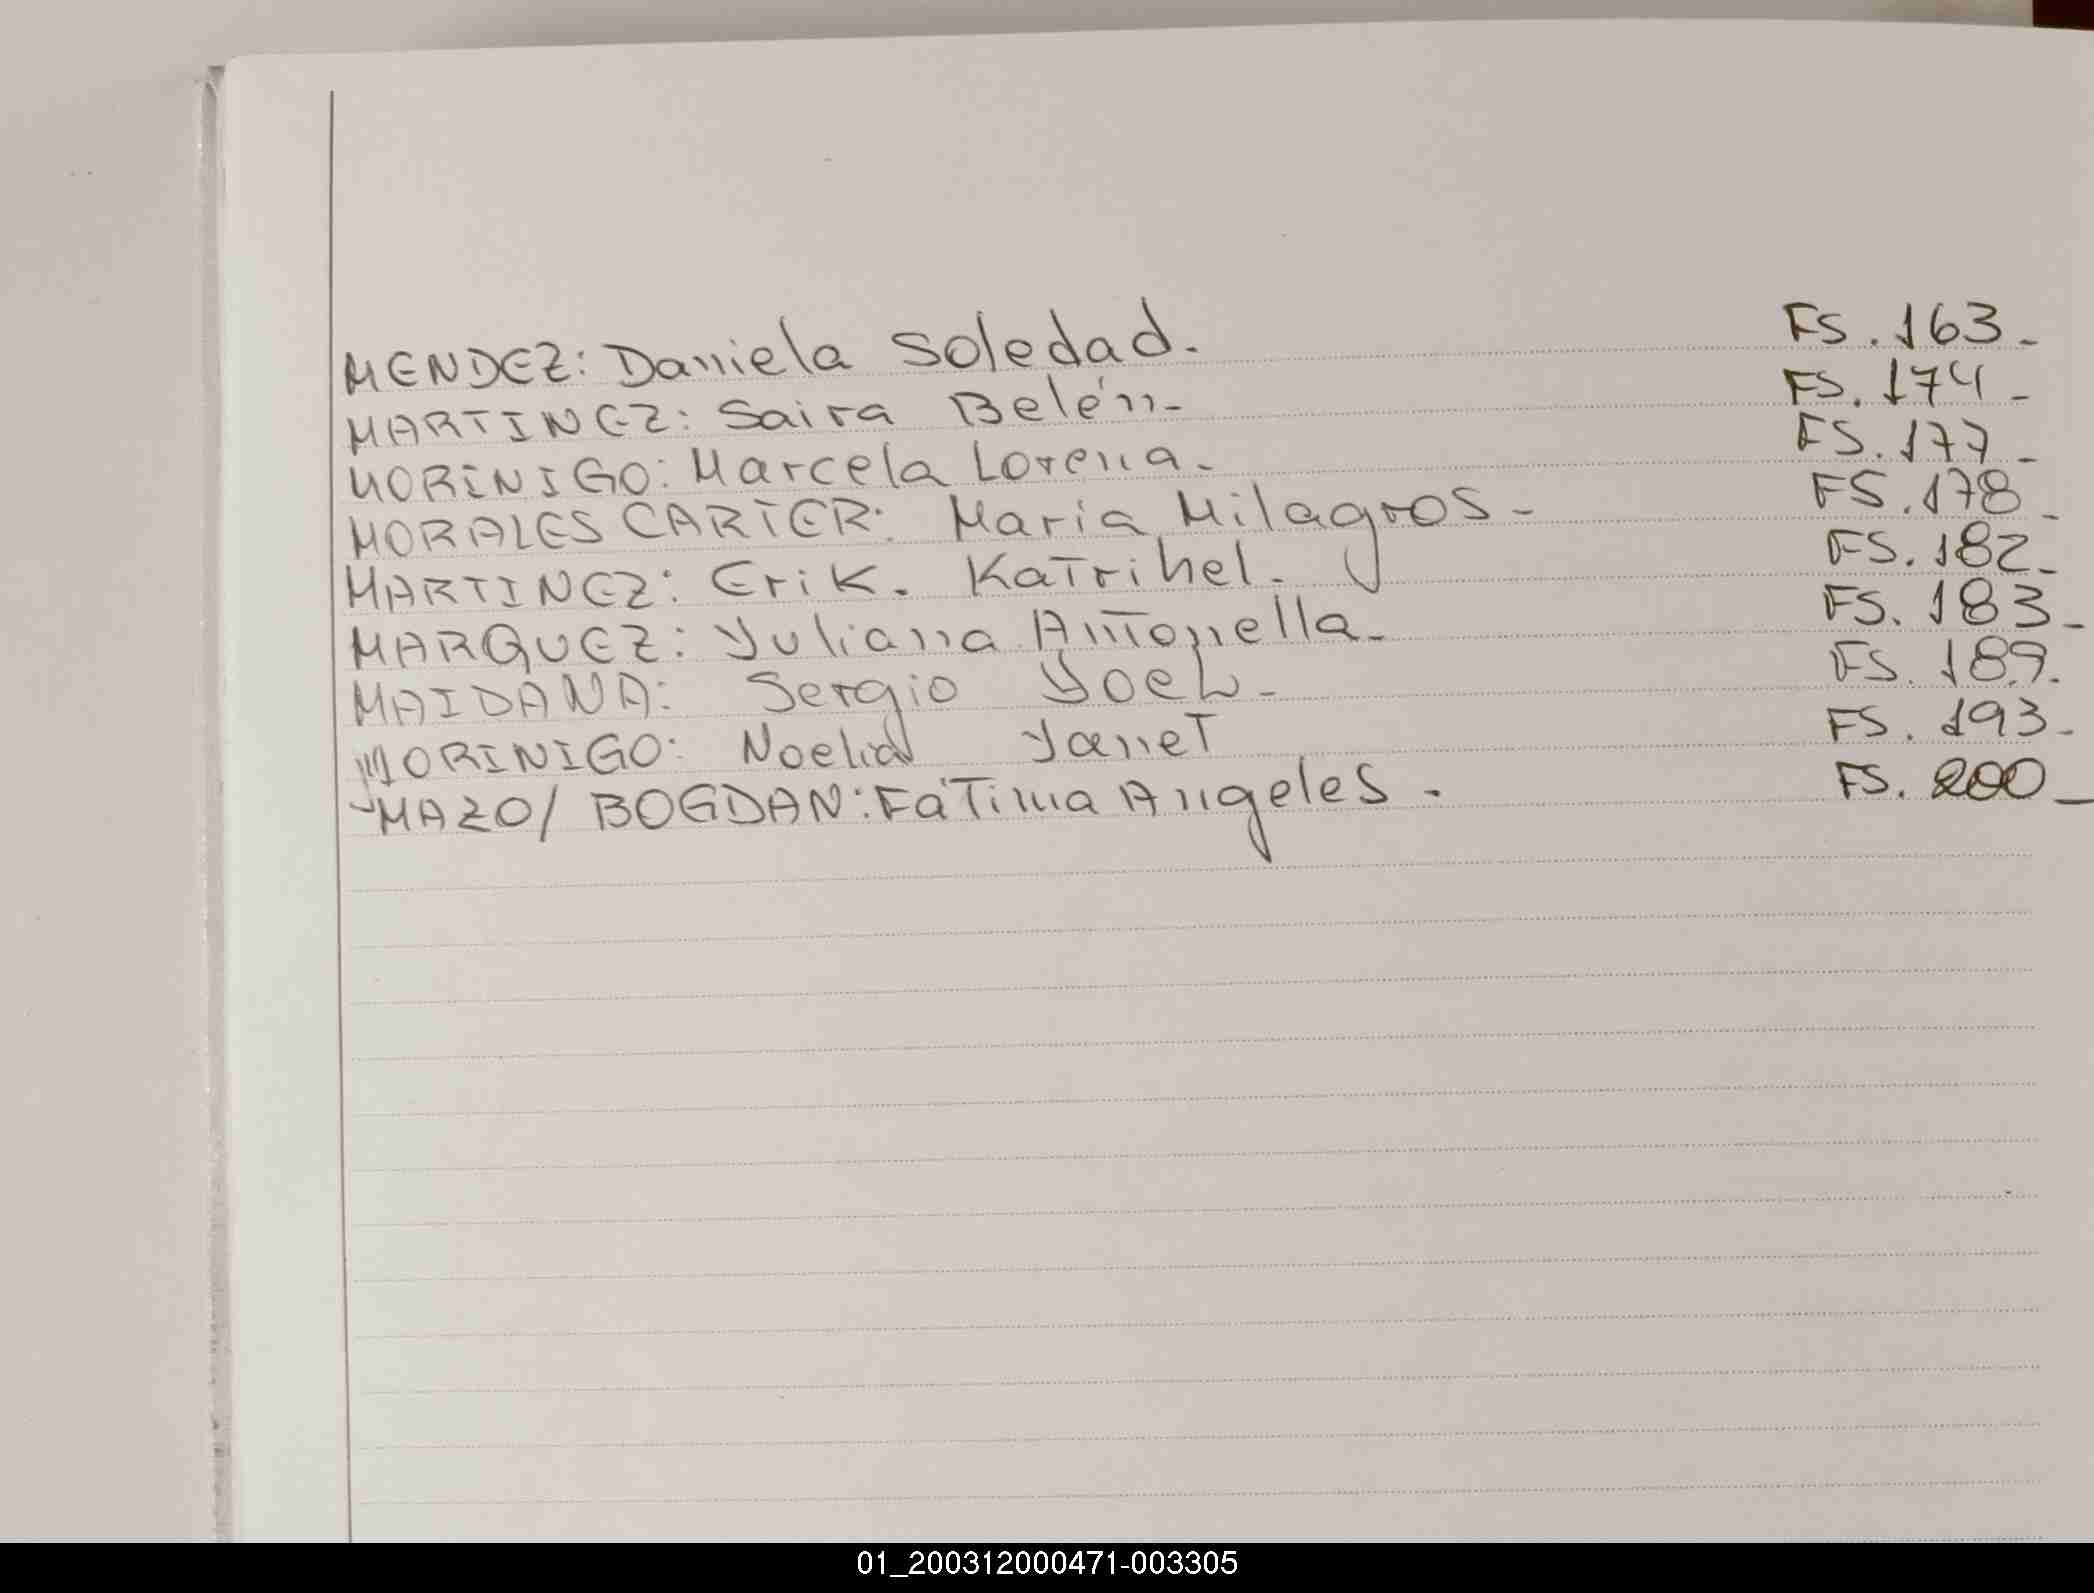 MENDEZ: Daniela Soledad. FS. 163-
MARTINEZ: Saira Belén- FS. 174-
MORINIGO: Marcela Lorena- FS. 177-
MORALES CARTER: María Milagros- FS. 178-
MARTINEZ: Erik. Katrihel. FS. 182-
MARQUEZ: Yuliana Antonella- FS. 183-
MAIDANA: Sergio Yoel- FS. 189.
MORINIGO: Noelia Yanet FS. 193-
-MAZO/ BOGDAN: Fátima Angeles. FS. 200-
01_200312000471-003305